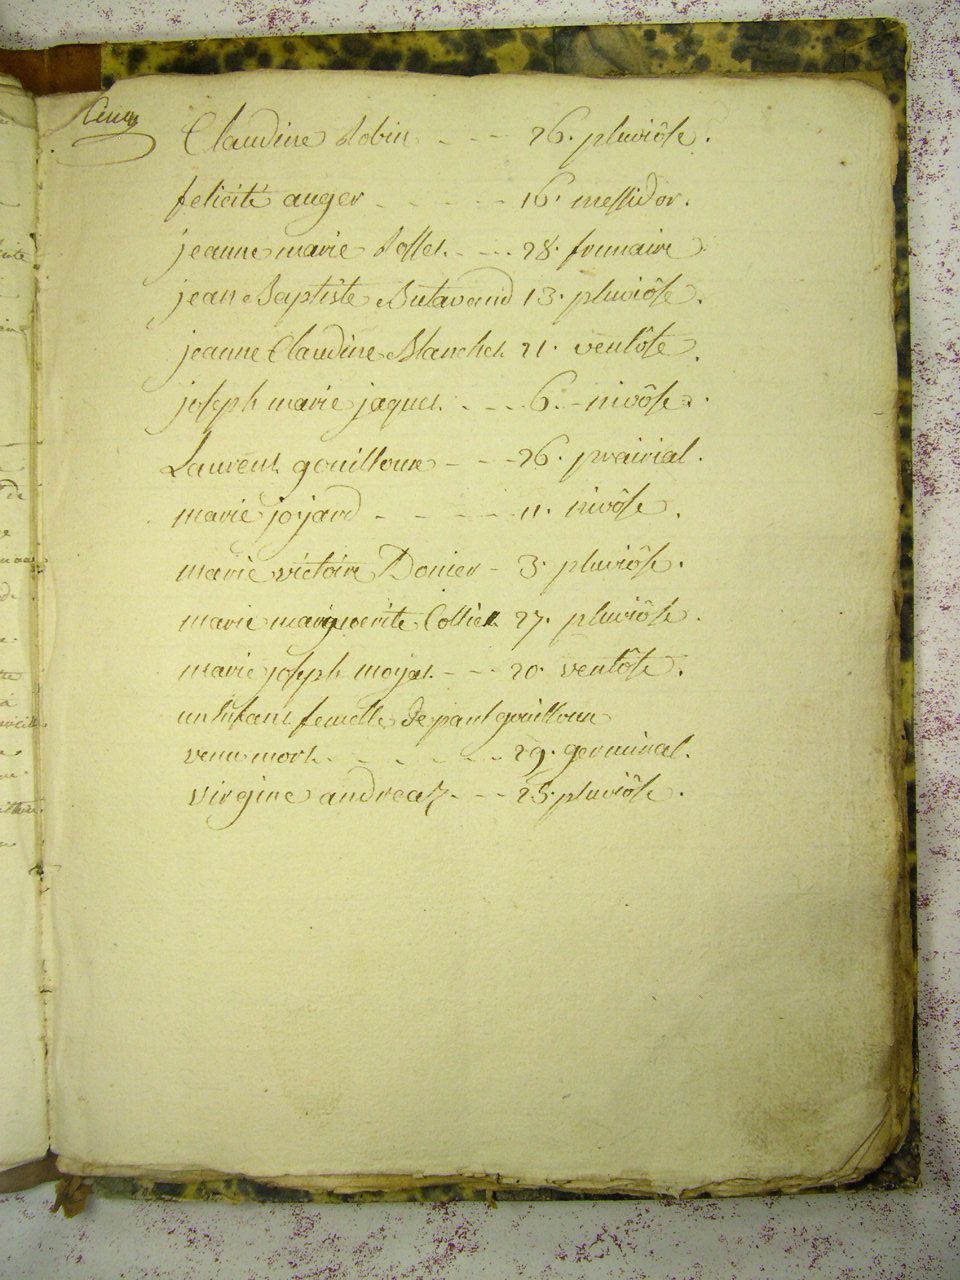 Cinq
Claudine Robin - - - 26. pluviôse.
felicité auger - - - - - 16. messidor.
jeanne marie - - - 28. frimaire
jean Baptiste Butavand 13. pluviôse.
jeanne Claudine Blanchet 21. ventôse.
joseph marie jaquet - - - 6. nivôse.
Laurent gouilloux - - - 26. prairial.
marie jojard - - - - - 11. nivôse.
marie victoire Donier - 3. pluviôse.
marie marguerite Collier 27. pluviôse.
marie joseph moyat - - - 20. ventôse.
un Enfant femelle de paul gouilloux
venu mort - - - - - - 29. germinal.
virgine andreaz - - - 25. pluviôse.